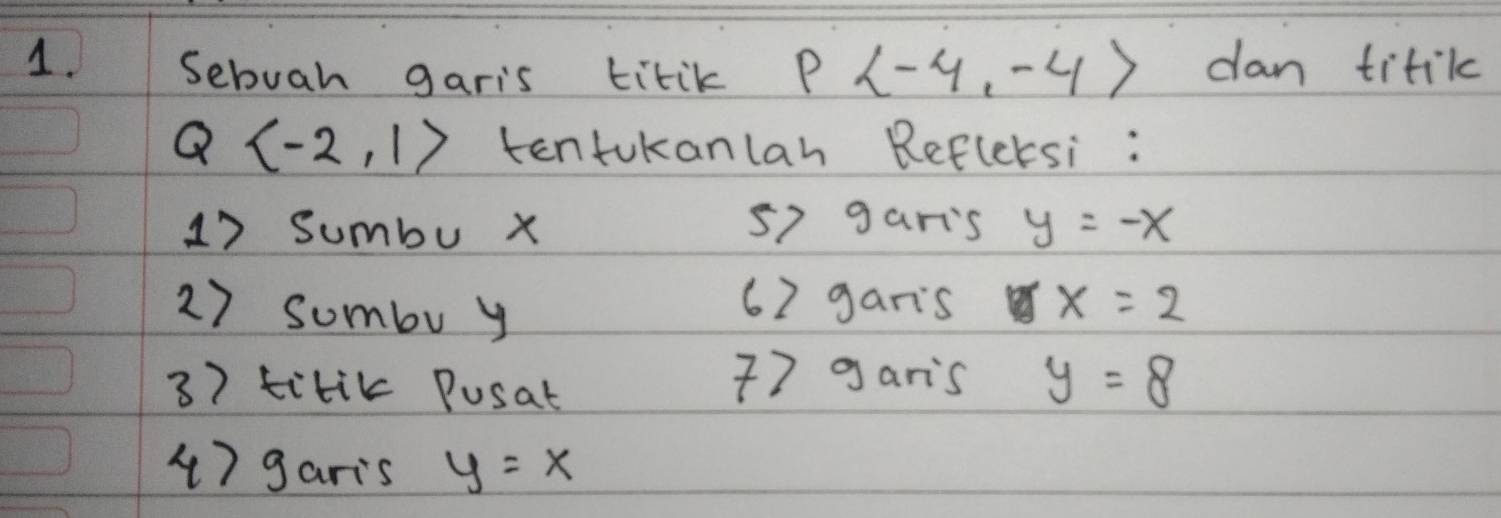 1. Sebuah garis titik P <-4, -4> dan titik
Q <-2, 1> tentukanlah Refleksi :
1> Sumbu x
2> Sumbu y
3> titik Pusat
4> garis y = x
5> garis y = -x
6> garis x = 2
7> garis y = 8